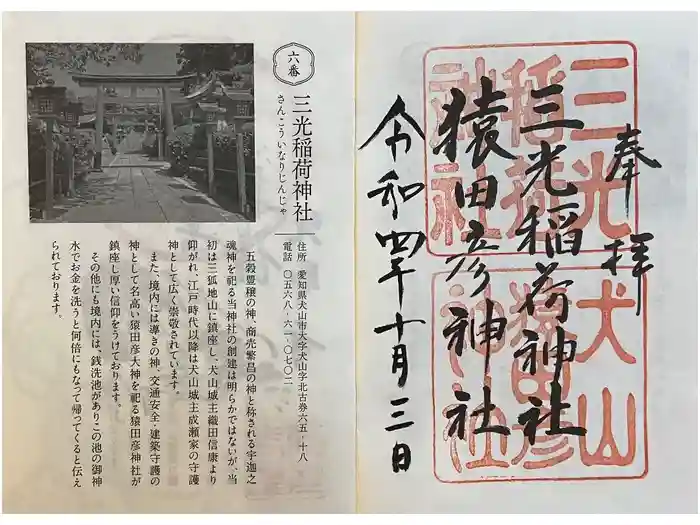 奉拝
三光稲荷神社
猿田彦神社
令和四年十月三日
三光
稲荷
神社
犬山
猿田彦
神社
六番
三光稲荷神社
さんこういなりじんじゃ
住所 愛知県犬山市大字犬山字北古券六五‐十八
電話 〇五六八‐六一‐〇七〇二
五穀豊穣の神、商売繁昌の神と称される宇迦之
魂神を祀る当神社の創建は明らかではないが、当
初は三狐地山に鎮座し、犬山城主織田信康より
仰がれ、江戸時代以降は犬山城主成瀬家の守護
神として広く崇敬されています。
また、境内には導きの神、交通安全・建築守護の
神として名高い猿田彦大神を祀る猿田彦神社が
鎮座し厚い信仰をうけております。
その他にも境内には、銭洗池がありこの池の御神
水でお金を洗うと何倍にもなって帰ってくると伝え
られております。